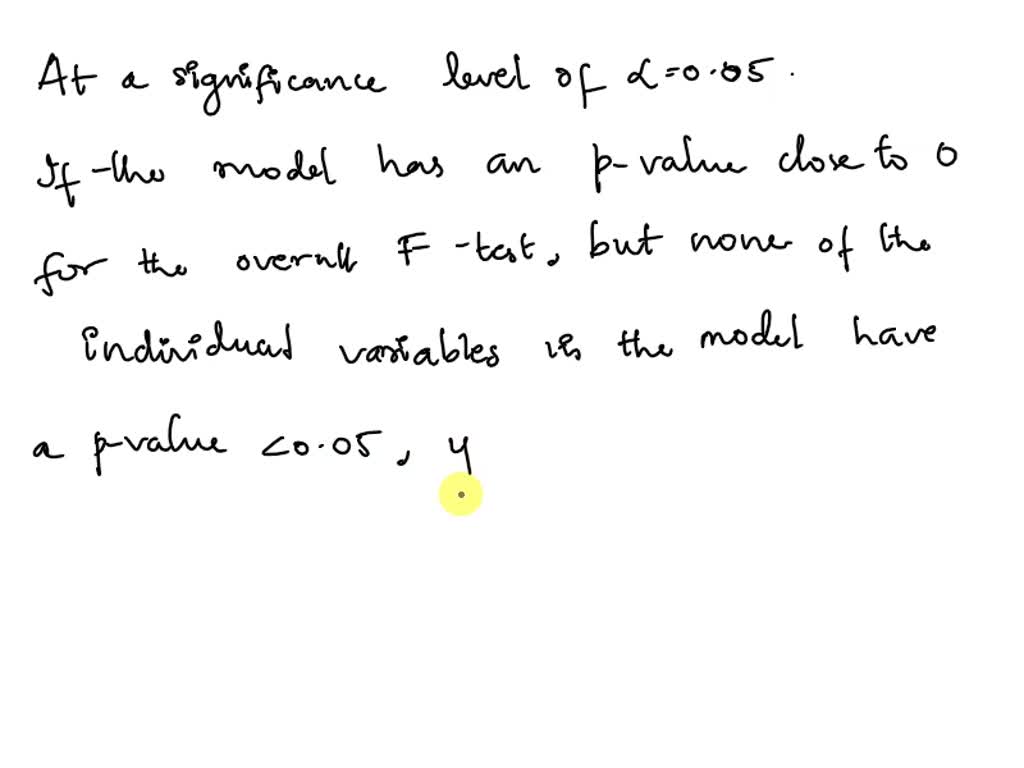 At a significance level of α=0.05.
If the model has an p-value close to 0
for the overall F-test, but none of the
individual variables in the model have
a p-value <0.05, y